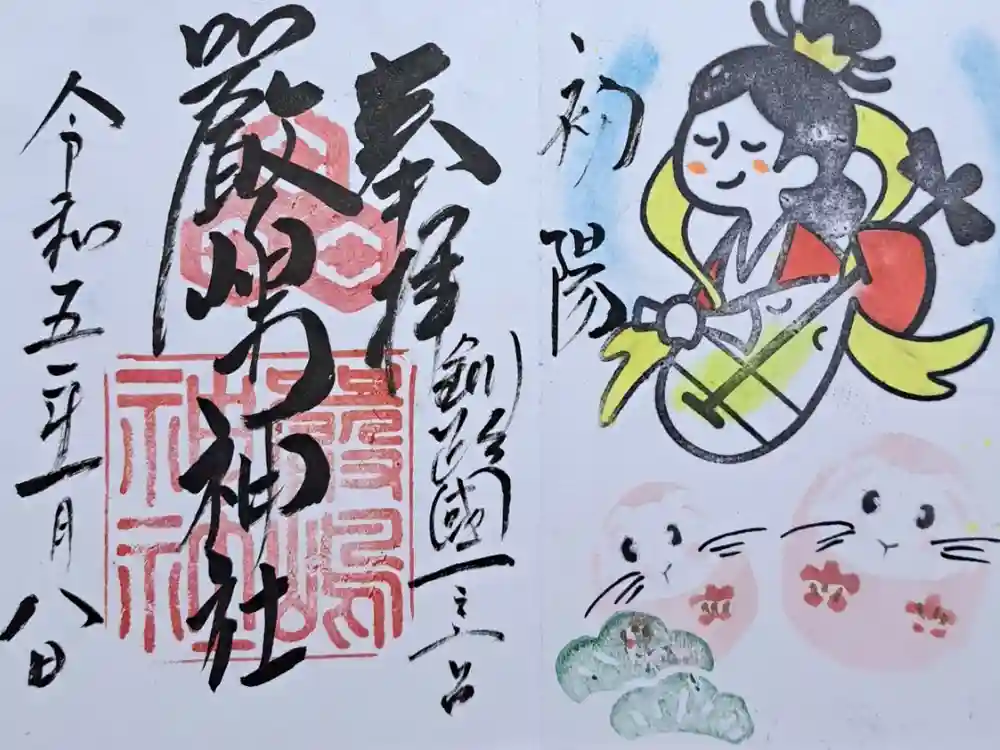 初陽
奉拝
釧路國一之宮
厳島神社
嚴嶋
神社
令和五年一月八日